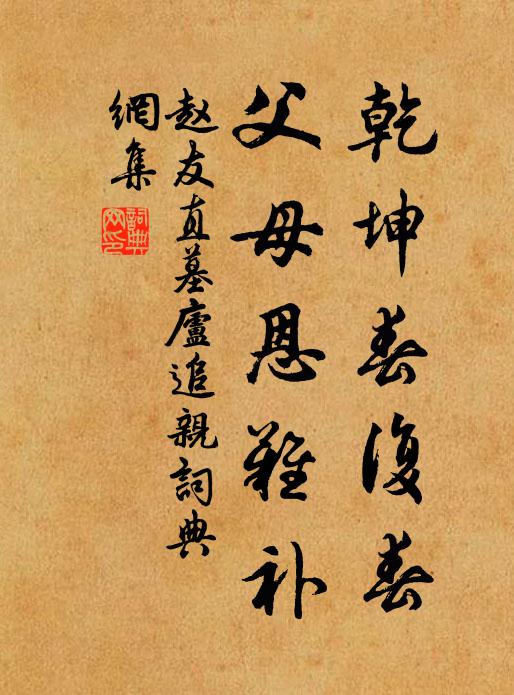 乾坤春復春
父母恩难补
赵友直墓廬追親詞典
網集
詞典
网印